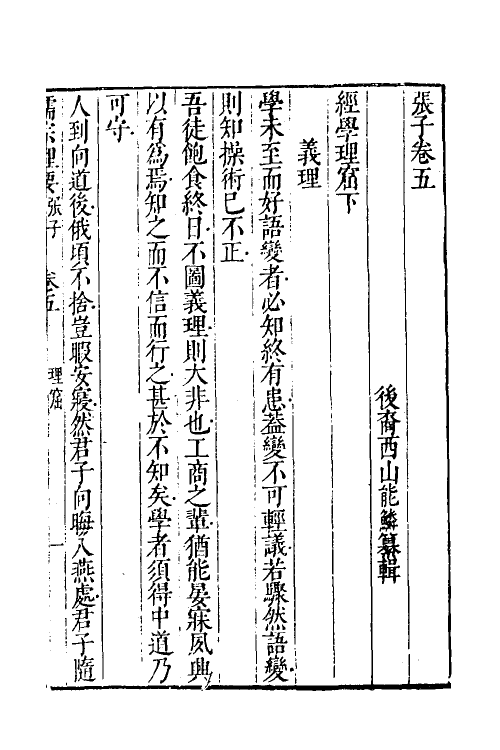 張子卷五
後裔西山能鱗纂輯
經學理窟下
義理
學未至而好語變者必知終有患蓋變不可輕議若驟然語變
則知操術已不正
吾徒飽食終日不圖義理則大非也工商之輩猶能晏寐夙興
以有爲焉知之而不信而行之甚於不知矣學者須得中道乃
可守
人到向道後俄頃不捨豈暇安寢然君子向晦入燕處君子隨
儒宗理要 張子 卷五 理窟 一